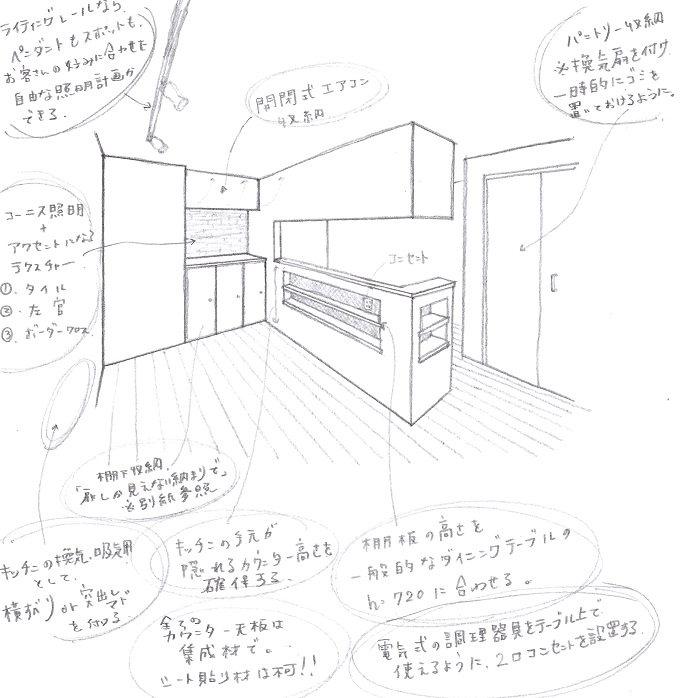 ライティングレールなら、
ペンダントもスポットも、
お客さんの好みに合わせた
自由な照明計画が
できる。
開閉式エアコン
収納
パントリー収納
※換気扇を付け、
一時的にゴミを
置いておけるように。
コーニス照明
+
アクセントになる
テクスチャー
①.タイル
②.左官
③.ボーダークロス
コンセント
棚下収納。
「扉しか見えない納まりで」
※別紙参照
キッチンの換気・吸気用
として、
横すべりか突出し
マド
を付ける
キッチンの手元が
隠れるカウンター高さを
確保する。
棚板の高さを
一般的なダイニングテーブルの
h=720に合わせる。
全ての
カウンター天板は
集成材で。
シート貼り材は不可!!
電気式の調理器具をテーブル上で
使えるように、2口コンセントを設置する。